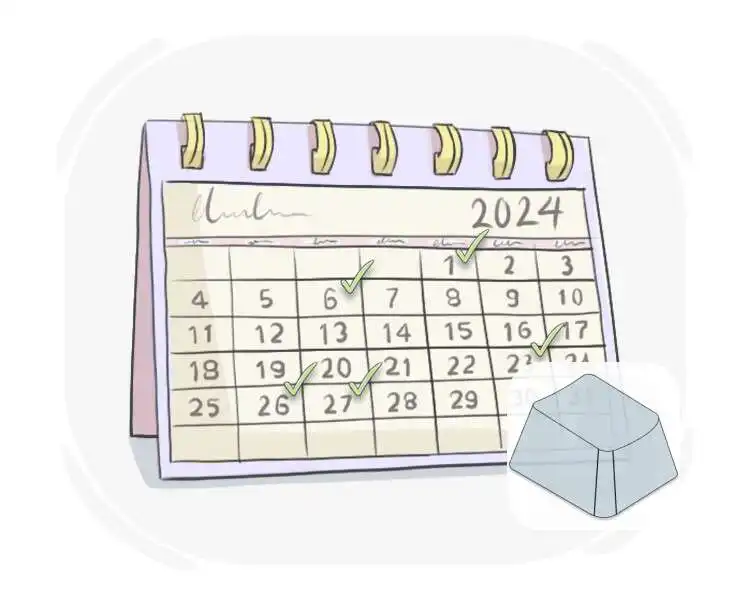 2024
1 2 3
4 5 6 7 8 9 10
11 12 13 14 15 16 17
18 19 20 21 22 23 24
25 26 27 28 29 30